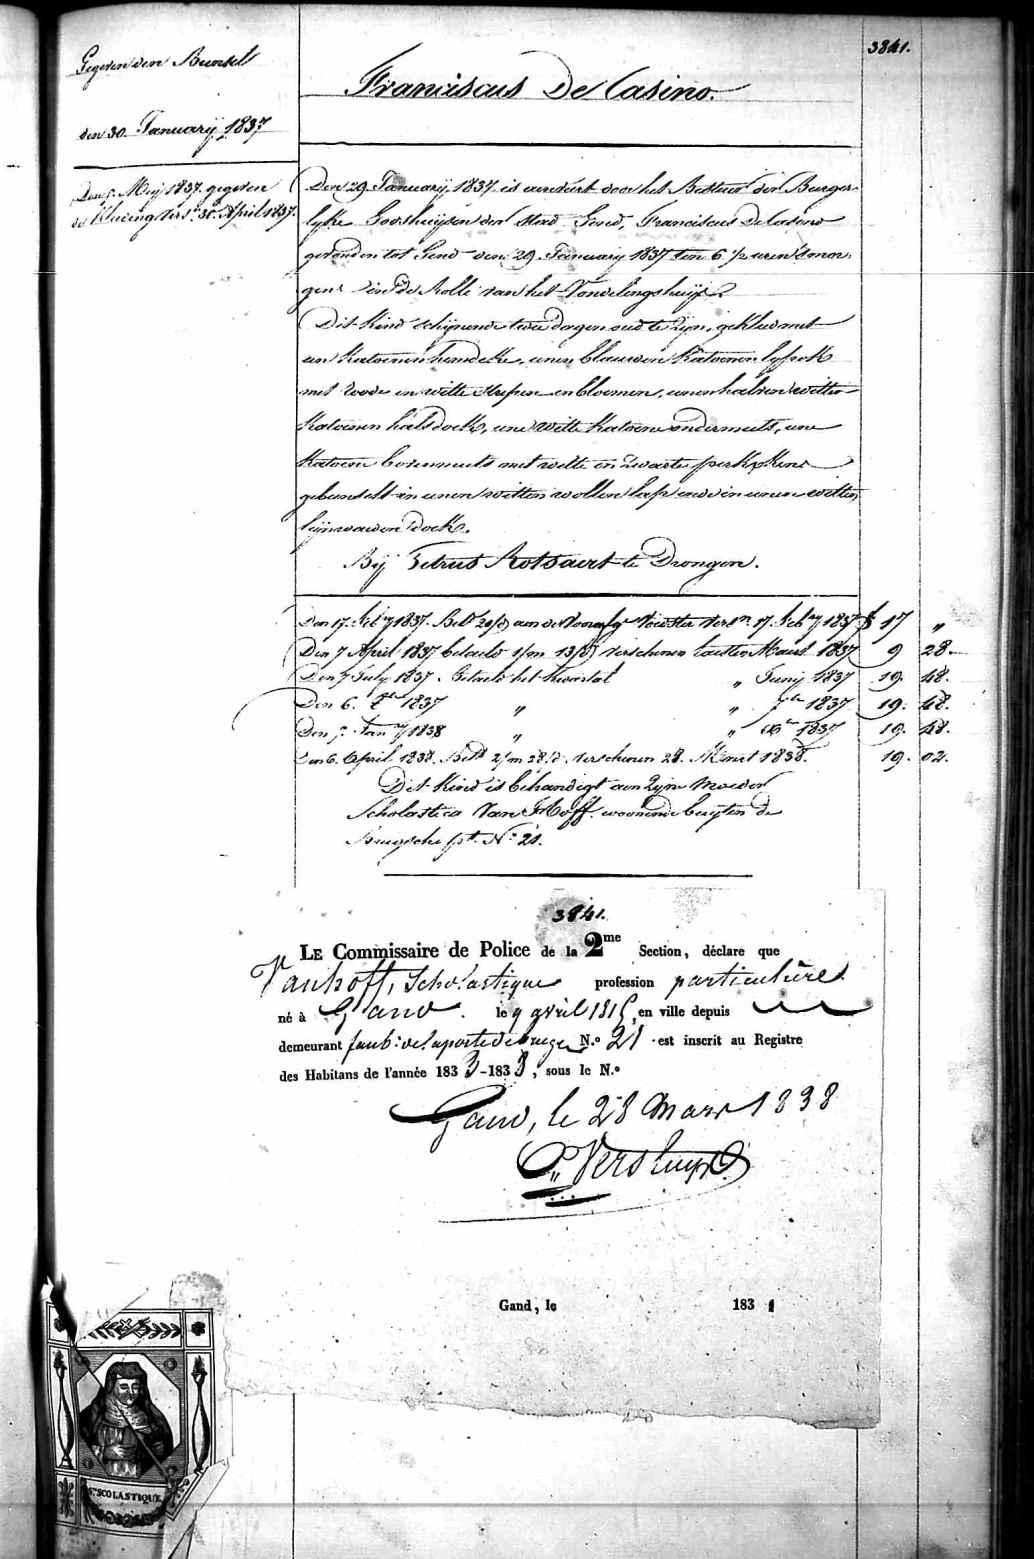 3841.
Gegeven den Bunsel
den 30. January 1837
Franciscus De Casino.
Meij 1837. gegeven
de kleeding vers. 30. April 1837.
Den 29 January 1837 is aenveird door het Bestuur der Burger-
lyke Godshuijsen der stad Gend, Franciscus De Casino
gevonden tot Gend den 29. January 1837 ten 6 1/2 uren 's mor-
gens in de Rolle van het Vondelingshuijs.
Dit kind schijnende twee dagen oud te zijn, gekleed met
een katoenen hemdeke, eenen blauwen katoenen lyfrok
met roode en witte strepen en bloemen, eenen halven witten
katoenen halsdoek, eene witte katoene ondermuts, eene
katoene bovenmuts met witte en zwarte perkxkens
gebunselt in eenen witten wollen lap ende in eenen witten
lijnwaeden doek.
Bij Petrus Rotsaert te Drongen.
Den 17. Feby 1837. Bet. aen de voester vers. 17. Feby 1837 f 17 "
Den 7 April 1837 betaeld 1/m 13/d verschenen laesten Maert 1837 9 28.
Den 7 July 1837. Betaeld het kwartal " Junij 1837 19. 48.
Den 6. 8er 1837 " " 7er 1837 19. 48.
Den 5. Jany 1838 " " Xer 1837 19. 48.
Den 6. April 1838. Betd 2/m 28/d. verschenen 28. Maert 1838. 19. 02.
Dit kind is behandigt aen zijne moeder
Scholastica Van Hoff. woonende buyten de
Brugsche pt. No 21.
3841.
LE Commissaire de Police de la 2me Section, déclare que
Vanhoff, Scholastique profession particulière
né à Gand. le 9 avril 1815, en ville depuis
demeurant faub: de la porte de bruges N.o 21 est inscrit au Registre
des Habitans de l'année 183 3-183 3, sous le N.o
Gand, le 28 Mars 1838
Gand, le 183
STE SCOLASTIQUE